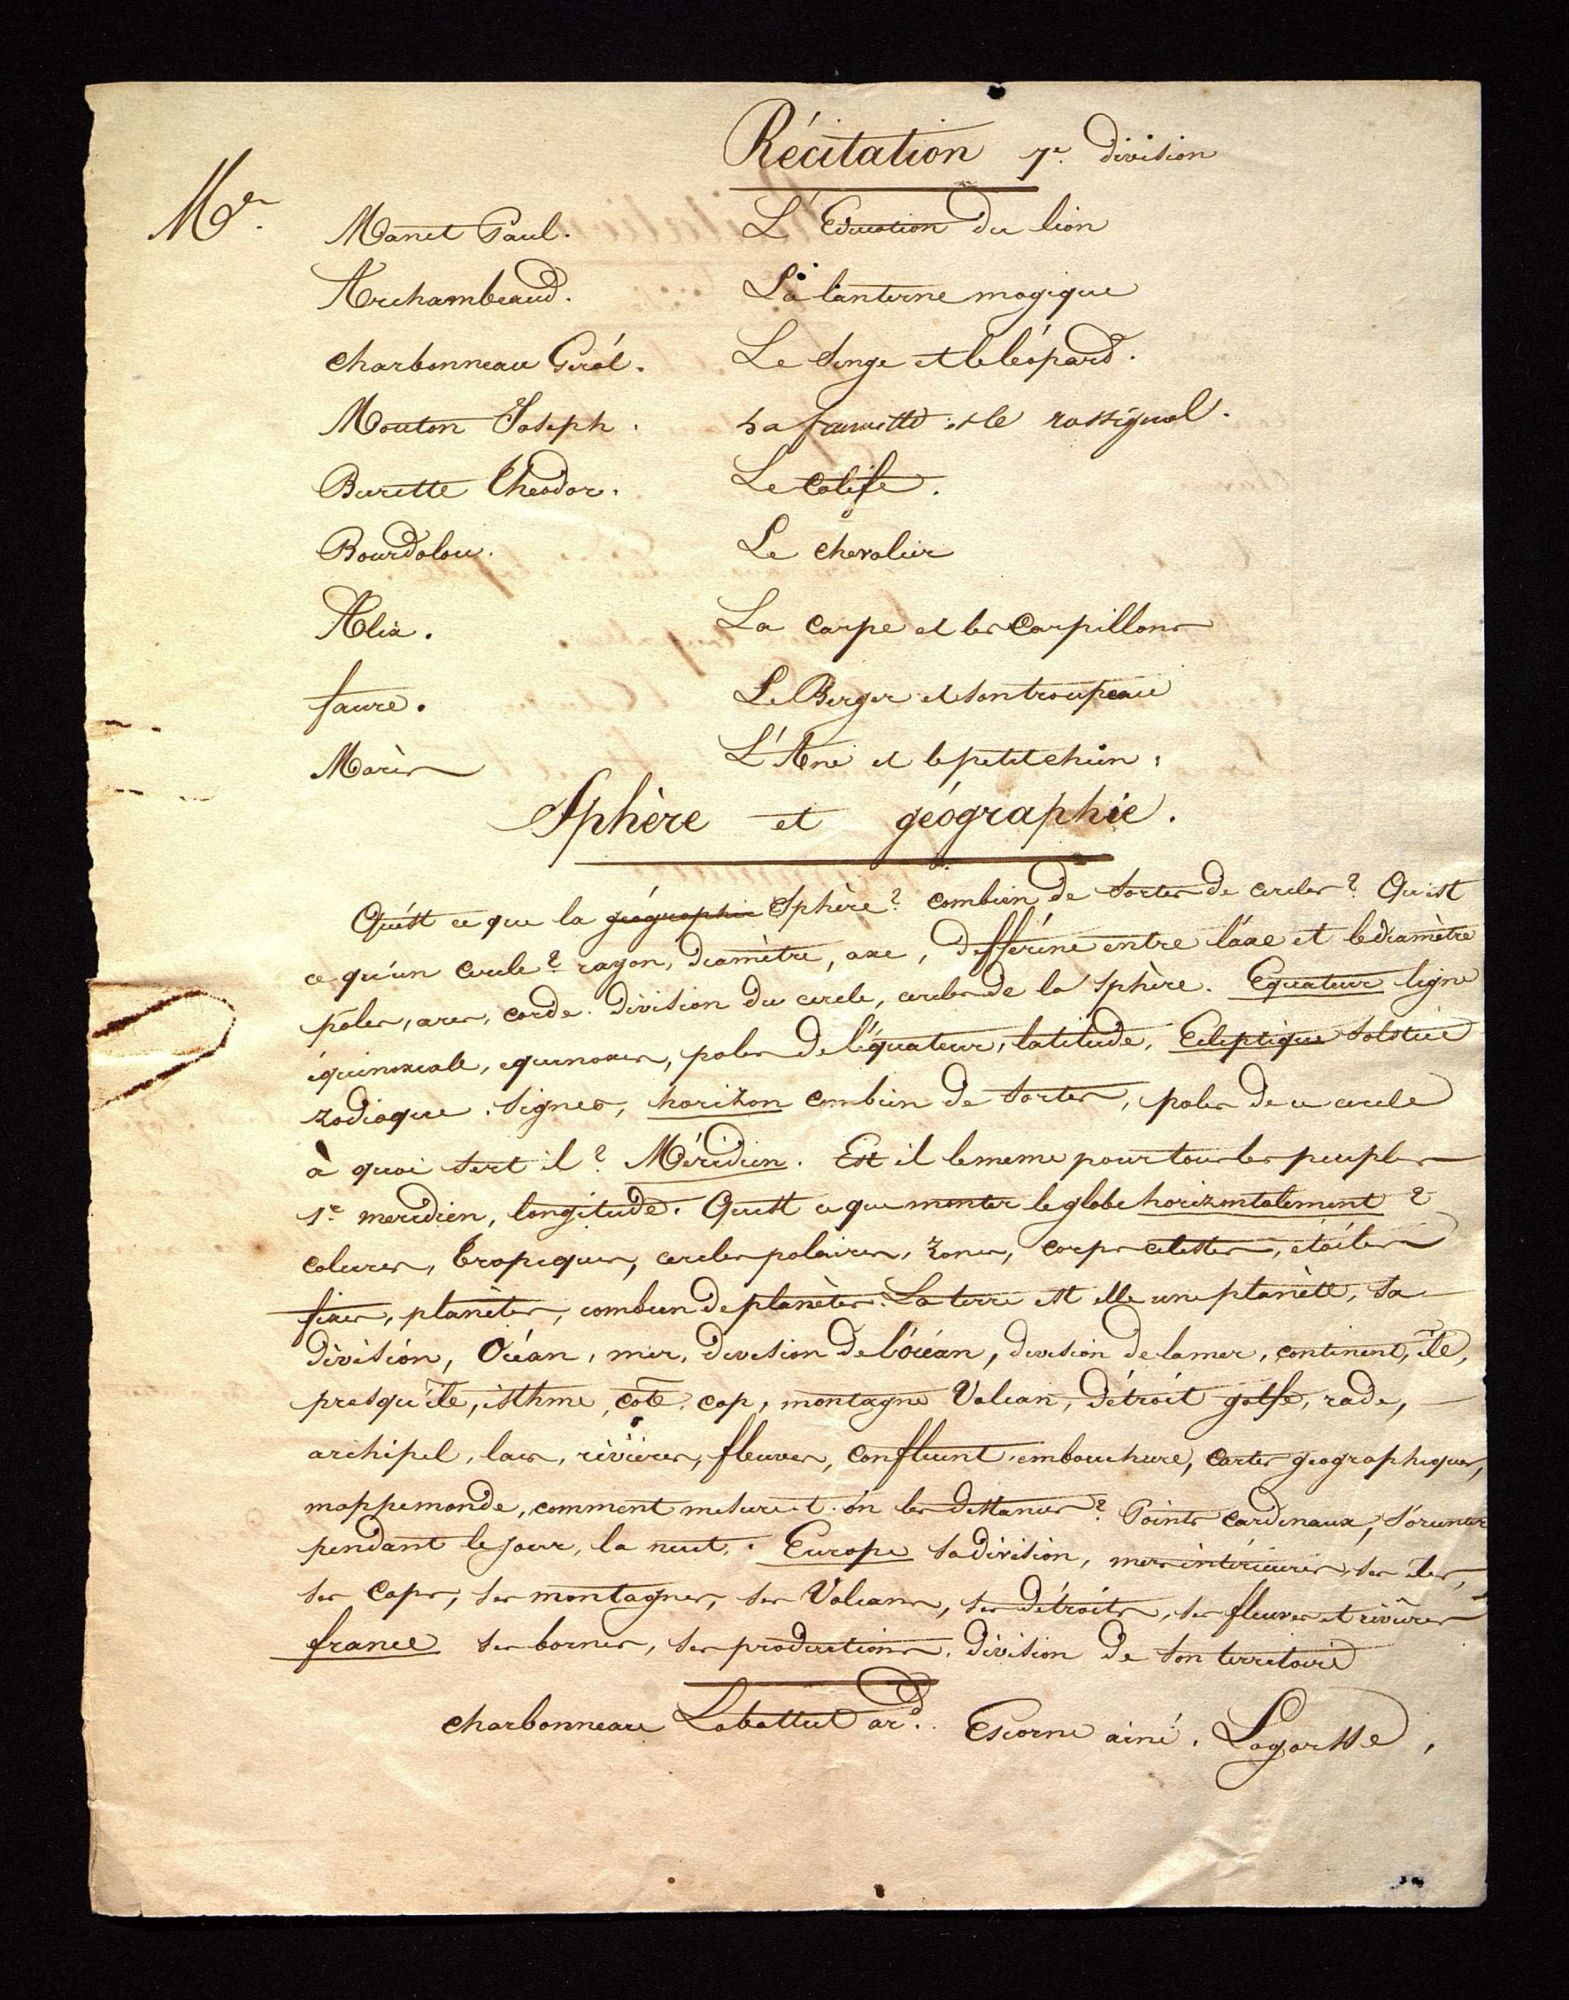 Récitation 7e division
Mrs.
Manet Paul. L'Education du lion
Archambeaud. La lanterne magique
Charbonneau Géral. Le Singe et le léopard.
Mouton Joseph. La fauvette et le rossignol.
Burette Theodor. Le Calife.
Bourdolou. Le chevalier
Alix. La Carpe et les Carpillons
faure. Le Berger et son troupeau
Marès L'Ane et le petit chien.
Sphère et géographie.
Qu'est ce que la géographie Sphère? combien de sortes de cercles? Qu'est
ce qu'un cercle? rayon, diamètre, axe, différence entre l'axe et le diamètre
pôles, arcs, corde. division du cercle, cercles de la Sphère. Equateur ligne
équinoxiale, equinoxes, poles de l'équateur, latitude, Ecleptique Solstice
zodiaque. signes, horizon combien de sortes, poles de ce cercle
à quoi sert il? Méridien. Est il le meme pour tous les peuples
1er meridien, longitude. Qu'est ce que monter le globe horizontalement?
colures, tropiques, cercles polaires, zones, corps celestes, étoiles
fixes, planètes, combien de planètes. La terre est elle une planète, sa
division, Océan, mer, division de l'océan, division de la mer, continent, île,
presqu'île, isthme, côte, cap, montagne Volcan, détroit golfe, rade,
archipel, lacs, rivières, fleuves, confluent, embouchure, cartes géographiques,
mappemonde, comment mesure-t-on les distances? Points cardinaux, s'orienter
pendant le jour, la nuit. Europe sa division, mers intérieures, ses iles,
ses caps, ses montagnes, ses Volcans, ses détroits, ses fleuves et rivières
france ses bornes, ses productions, division de son territoire
charbonneau Labattut ard. Escorne ainé. Lagarsse,